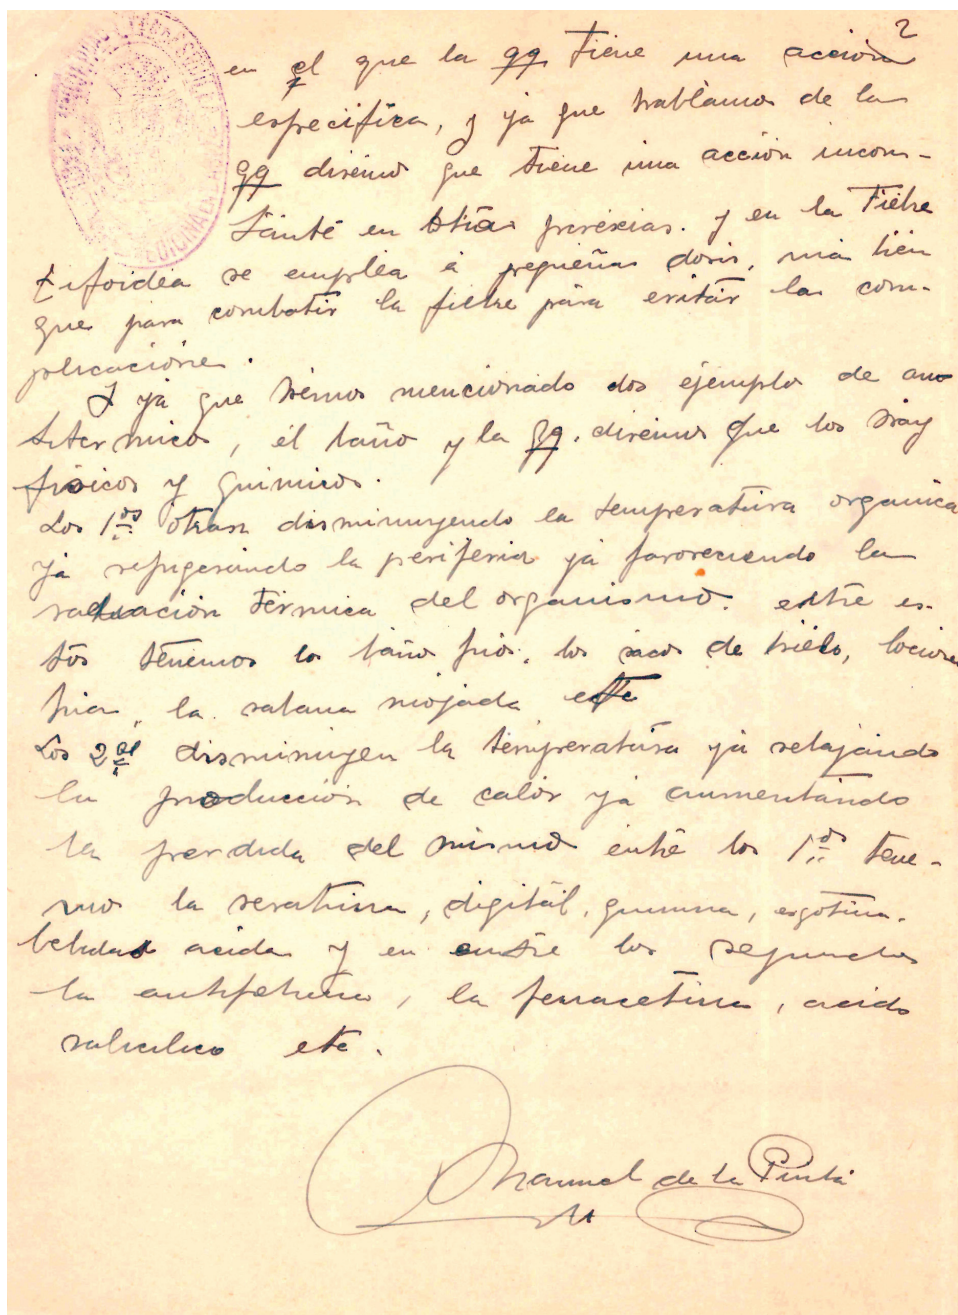 2
en el que la qq tiene una acción
especifica, y ya que hablamos de la
qq diremos que tiene una acción incons-
tante en otras pirexias. y en la Fiebre
tifoidea se emplea á pequeñas dosis, mas bien
que para combatir la fiebre para evitar las com-
plicaciones.
Y ya que hemos mencionado dos ejemplos de an
titermicos, el baño y la qq. diremos que los hay
fisicos y quimicos.
Los 1os obran disminuyendo la temperatura organica
ya refrigerando la periferia ya favoreciendo la
radiación térmica del organismo. entre es-
tos tenemos los baños frios, los sacos de hielo, lociones
frias, la sabana mojada etc
Los 2os disminuyen la temperatura ya rebajando
la producción de calor ya aumentando
la perdida del mismo entre los 1os tene-
mos la veratrina, digital, quinina, ergotina.
bebidas acidas y en entre los segundos
la antifebrina, la fenacetina, acido
salicilico etc.
Manuel de la Pinta